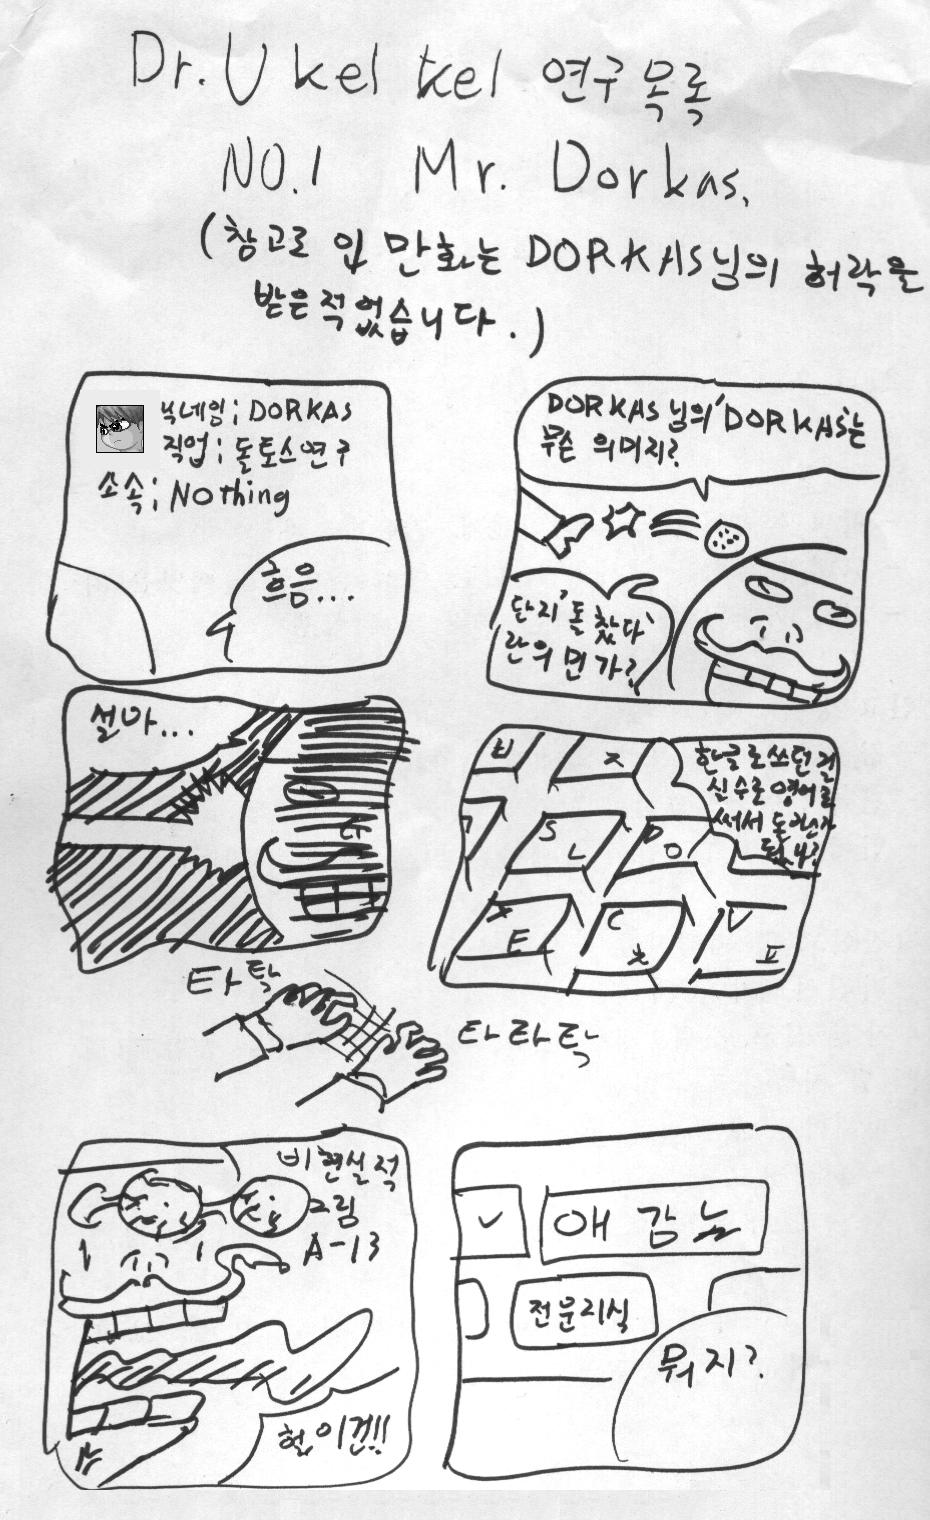 Dr. Ukel kel 연구목록
NO.1 Mr. Dorkas.
(창고로 이 만화는 DORKAS님의 허락을
받은적없습니다.)
닉네임; DORKAS
직업; 돌토스연구
소속; Nothing
흐음...
DORKAS님의 'DORKAS'는
무슨 의미지?
단지 '돌찼다'
란의 면가?
설마...
ㅂ
ㅈ
한글로쓰던걸
실수로 영어로
써서
S
L
D
O
X
E
C
ㅊ
V
ㅍ
타탁
타타탁
비현실적
그림
A-13
헐, 이건!!
애감늠
전문지식
뭐지?